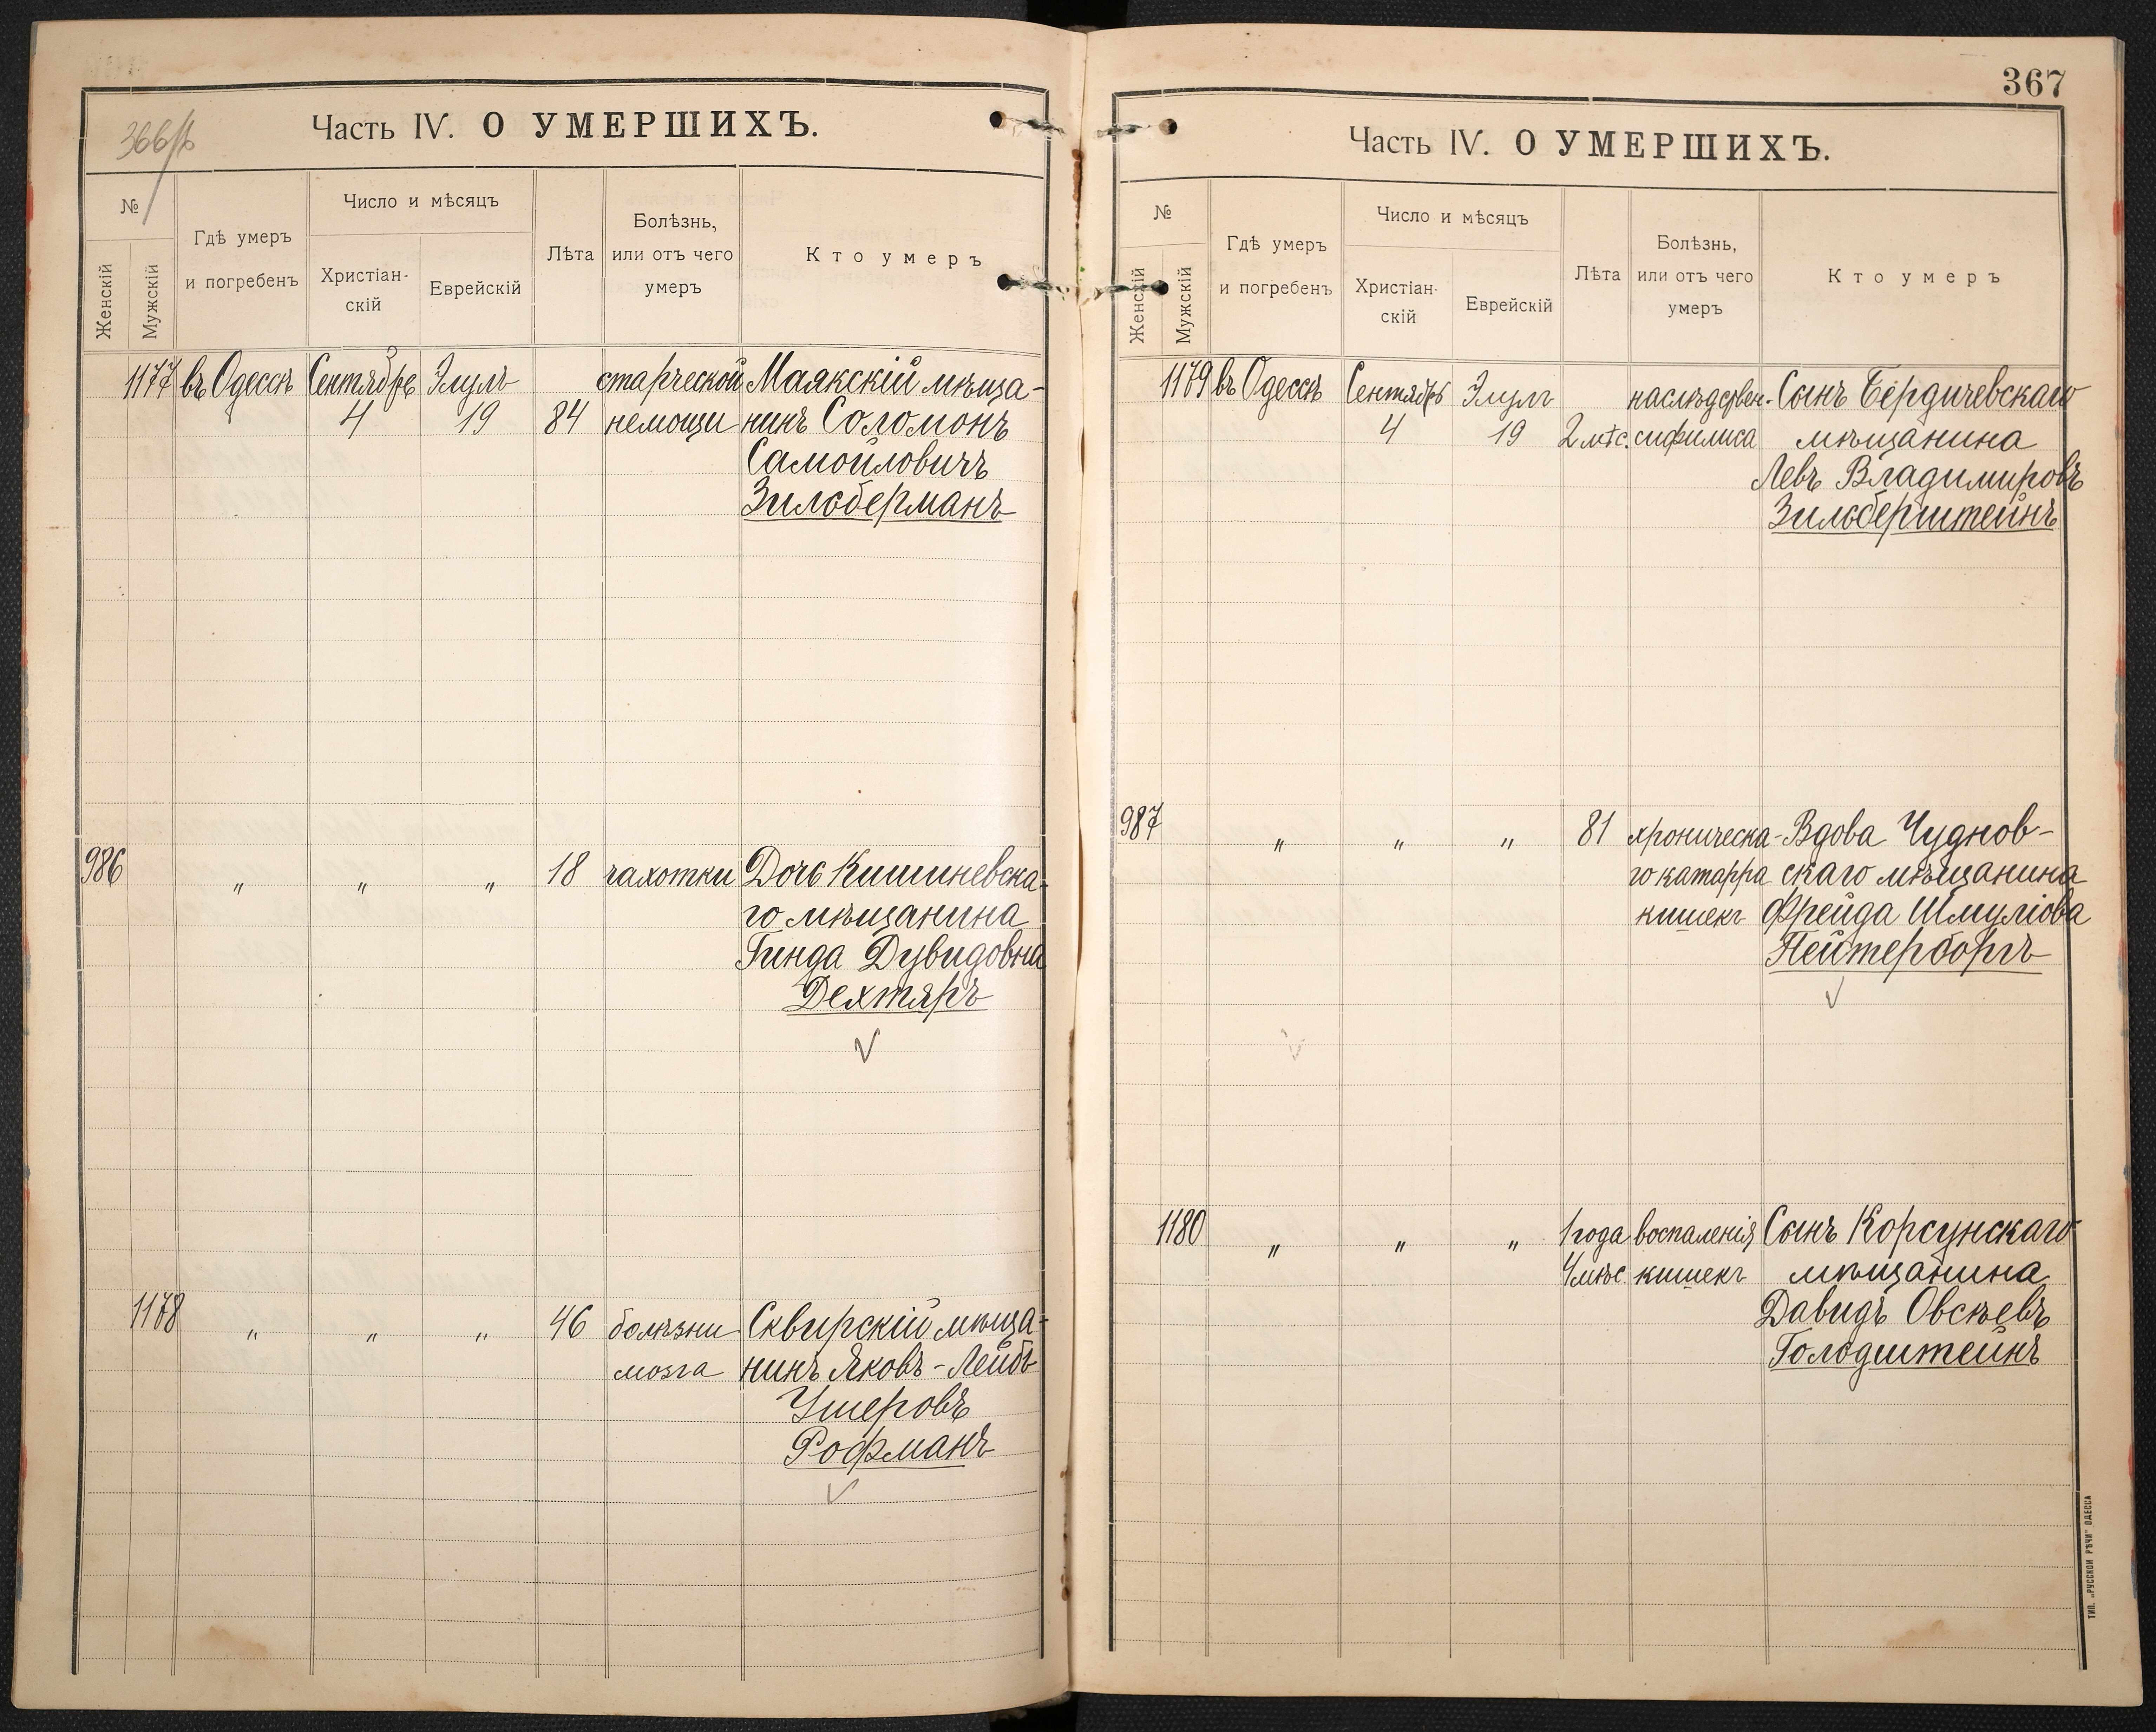 366/б
Часть IV. О УМЕРШИХЪ.
№
Женскій
Мужскій
Гдѣ умеръ
и погребенъ
Число и мѣсяцъ
Христіан-
скій
Еврейскій
Лѣта
Болѣзнь,
или отъ чего
умеръ
Кто умеръ
1177 въ Одессѣ Сентября Элулъ старческой Маякскій мѣща-
4 19 84 немощи нинъ Соломонъ
Самойловичъ
Зильберманъ
986 " " " 18 чахотки Дочь Кишиневска-
го мѣщанина
Гинда Дувидовна
Дехтяръ
1178 " " " 46 болѣзни Сквирскій мѣща-
мозга нинъ Яковъ-Лейбъ
Ушеровъ
Рофманъ
367
Часть IV. О УМЕРШИХЪ.
№
Женскій
Мужскій
Гдѣ умеръ
и погребенъ
Число и мѣсяцъ
Христіан-
скій
Еврейскій
Лѣта
Болѣзнь,
или отъ чего
умеръ
Кто умеръ
1179 въ Одессѣ Сентября Элулъ наслѣдствен. Сынъ Бердичевскаго
4 19 2 мѣс. сифилиса мѣщанина
Левъ Владимировъ
Зильберштейнъ
987 " " " 81 хроническа- Вдова Чуднов-
го катарра скаго мѣщанина
кишекъ Фрейда Шмуліова
Пейтерборгъ
1180 " " " 1 года воспаленія Сынъ Корсунскаго
4 мѣс кишекъ мѣщанина
Давидъ Овсѣевъ
Голодштейнъ
ТИП. „РУССКОЙ РѢЧИ" ОДЕССА